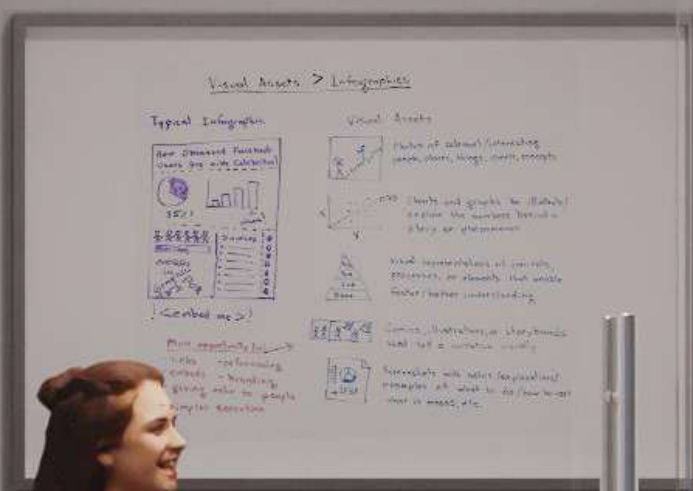 Visual Assets > Infographics
Typical Infographic
How Obsessed Facebook
Users Are with Celebrities!
35%!
<embed me>!
More opportunity for:
links - referencing
embeds - branding
giving value to people
simpler execution
Visual Assets
Photos of relevant/interesting
people, places, things, events, concepts
Charts and graphs to illustrate/
explain the numbers behind a
story or phenomenon
Visual representations of concepts,
processes, or elements that enable
faster/better understanding
Comics, illustrations, or storyboards
that tell a narrative visually
Screenshots with notes/explanations/
examples of what to do/how to use/
what it means, etc.